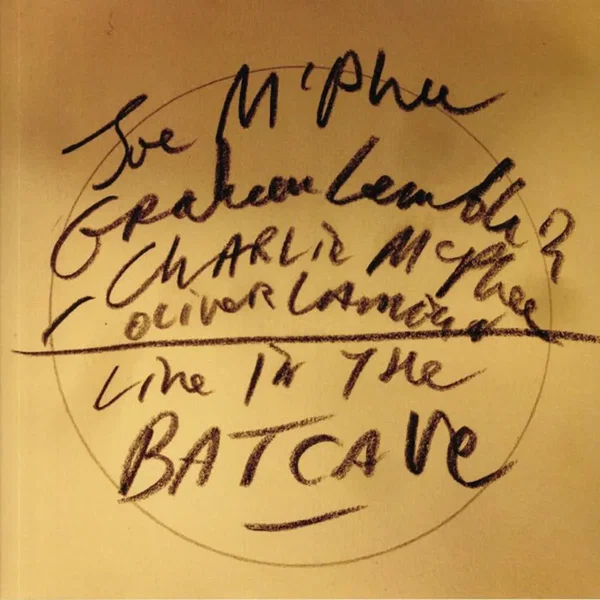 Joe McPhee
Graham Lambkin
CHARLIE McPhee
OLIVER LAMBKIN
Live IN THe
BATCAVe